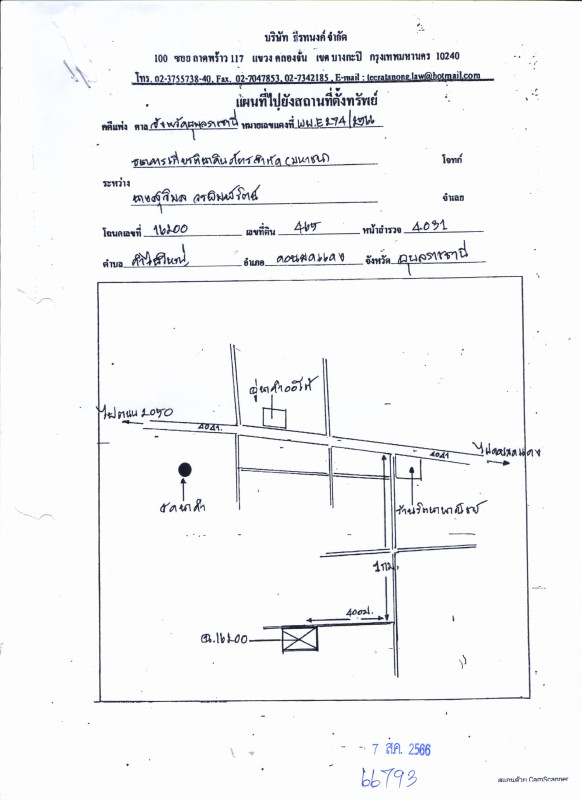 บริษัท ธีรทนงค์ จำกัด
100 ซอย ลาดพร้าว 117 แขวง คลองจั่น เขต บางกะปิ กรุงเทพมหานคร 10240
โทร. 02-3755738-40, Fax. 02-7047853, 02-7342185, E-mail : teeratanong.law@hotmail.com
แผนที่ไปยังสถานที่ตั้งทรัพย์
คดีแพ่ง ศาล จังหวัดอุบลราชธานี หมายเลขแดงที่ ผบ.E274/2566
ธนาคารเกียรตินาคินภัทรจำกัด(มหาชน) โจทก์
ระหว่าง
นางสุวิมล วรพิมพ์รัตน์ จำเลย
โฉนดเลขที่ 16200 เลขที่ดิน 465 หน้าสำรวจ 4031
ตำบล คำไฮใหญ่ อำเภอ ดอนมดแดง จังหวัด อุบลราชธานี
อู่นาคำออโต้
ไปถนน 2050
4041.
4041
ไปดอนมดแดง
วัดนาคำ
1 กม.
400ม.
ฉ.16200
7 ส.ค. 2566
66793
สแกนด้วย CamScanner